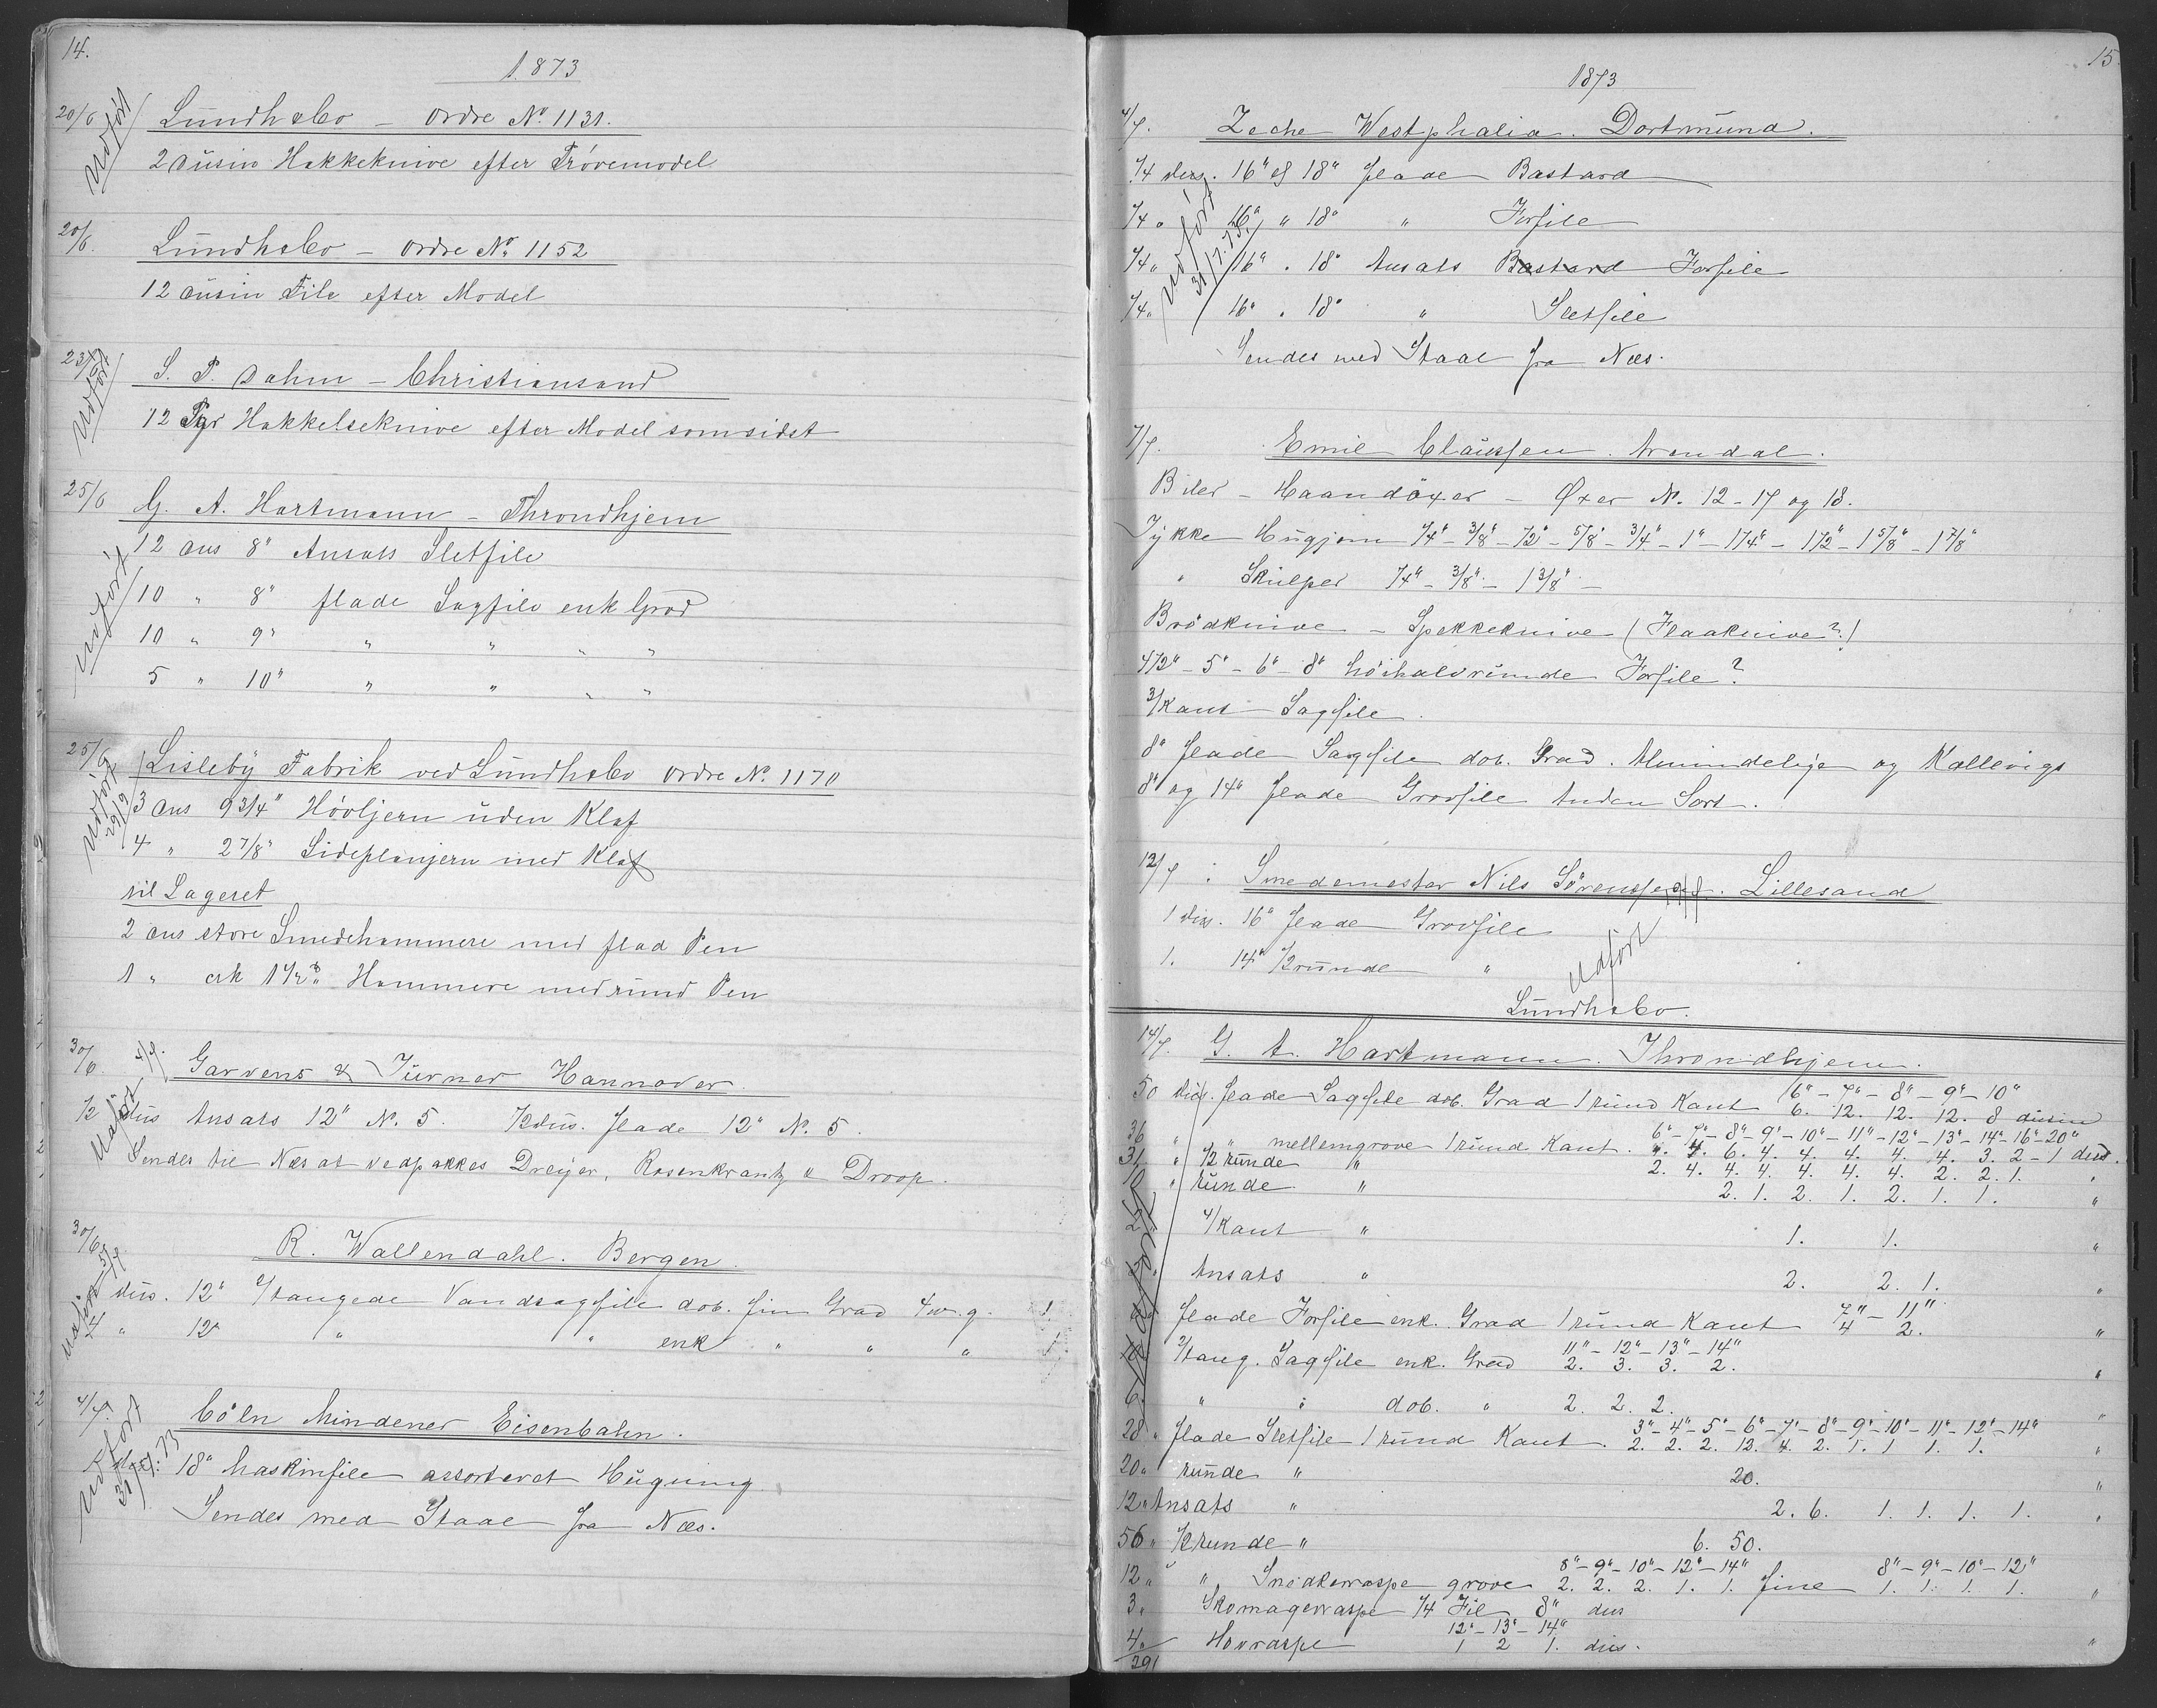 14.
1873
20/6 Udfört Lundhsbo – Ordre No. 1131.
2 Dusin Hakkeknive efter Prövemodel
20/6. Lundhsbo – Ordre No. 1152
12 Dusin File efter Model
23/6 Udfört S. P. Dahm – Christiansand
12 Hakkelseknive efter Model som sidst
25/6 G. A. Hartmann – Throndhjem
Udfört
12 Dus 8" Ansats Sletfile
10 " 8" flade Sagfile enk Grad
10 " 9" " " " "
5 " 10" " " " "
25/6 Lisleby Fabrik ved Lundhsbo Ordre No. 1170
Udfört 29/9
3 Dus 9 3/4" Hövljern uden Klaf
4 " 2 7/8" Sideplanjern med Klaf
til Lageret
2 Dus store Smedehammere med flad Pen
1 " 1 1/2 Hammere med rund Pen
30/6. Udfört 4/7. Garvens & Turner Hannover
1/2 dus Ansats 12" No. 5. 1/2 dus. flade 12" No. 5.
Sendes til Næs at vedpakkes Dreyer, Rosenkrantz & Droop.
30/6. Udfört 5/7. R. Wallendahl. Bergen.
dus. 12" 2/tangede Vandsagfile dob. fin Grad
" 12" " " enk " " "
4/7. Udfört 31/7.73 Cöln Mindener Eisenbahn.
18" Maskinfile assorteret Hugning.
Sendes med Staal fra Næs.
15
1873
4/7. Zeche Westphalia. Dortmund.
Udfört 31/7.73.
1/4 dus. 16" og 18" flade Bastard
1/4 " 16" " 18" " Forfile
1/4 " 16" " 18" Ansats Bastard Forfile
1/4 " 16" " 18" " Sletfile
Sendes med Staal fra Næs.
7/7. Emil Claussen. Arendal.
Biler – Haandöxer – Øxer No. 12 – 17 og 18.
Tykke Hugjern 1/4" – 3/8" – 1/2" – 5/8" – 3/4" – 1" – 1 1/4" – 1 1/2" – 1 5/8" – 1 7/8"
" Skulper 1/4" – 3/8" – 1 3/8" –
Brödknive – Spekkeknive (Flaaknive?)
4 1/2" – 5" – 6" – 8" höihalvrunde Forfile?
3/Kant Sagfile.
8" flade Sagfile dob. Grad. Almindelige og Kallevigs
8" og 14" flade Grovfile Anden Sort.
12/7. Smedemester Nils Sörenssen. Lillesand
1 dus. 16" flade Grovfile
1. 14" 1/2 runde "
Udfört
Lundhsbo.
14/7. G. A. Hartmann. Throndhjem.
50 dus. flade Sagfile dob. Grad 1 rund Kant 6" – 7" – 8" – 9" – 10"
6. 12. 12. 12. 8 dusin
36 " " mellemgrove 1 rund Kant. 6" – 7" – 8" – 9" – 10" – 11" – 12" – 13" – 14" – 16" – 20"
4. 6. 4. 4. 4. 4. 4. 3. 2 – 1 dus.
31 " 1/2 runde " 2. 4. 4. 4. 4. 4. 4. 2. 2. 1. "
10 " runde " 2. 1. 2. 1. 2. 1. 1. "
2 " 4/Kant " 1. 1. "
Ansats " 2. 2. 1. "
flade Forfile enk. Grad 1 rund Kant 7" – 11"
4 2. "
2/tang. Sagfile enk. Grad 11" – 12" – 13" – 14"
2. 3. 3. 2. "
6. " " dob. " 2. 2. 2. "
28 " flade Sletfile 1 rund Kant. 3" – 4" – 5" – 6" – 7" – 8" – 9" – 10" – 11" – 12" – 14"
2. 2. 2. 12. 4. 2. 1. 1 1. 1. "
20 " runde " 20. "
12 " Ansats " 2. 6. 1. 1. 1. 1. "
56 " 1/2 runde " 6. 50.
12 " " Snedkerraspe grove 8" – 9" – 10" – 12" – 14" fine 8" – 9" – 10" – 12"
2. 2. 2. 1. 1. 1. 1. 1. 1. "
3 " Skomagerraspe 1/4 Fil 8" dus
4 " Hovraspe 12" – 13" – 14"
1 2 1. dus. "
291